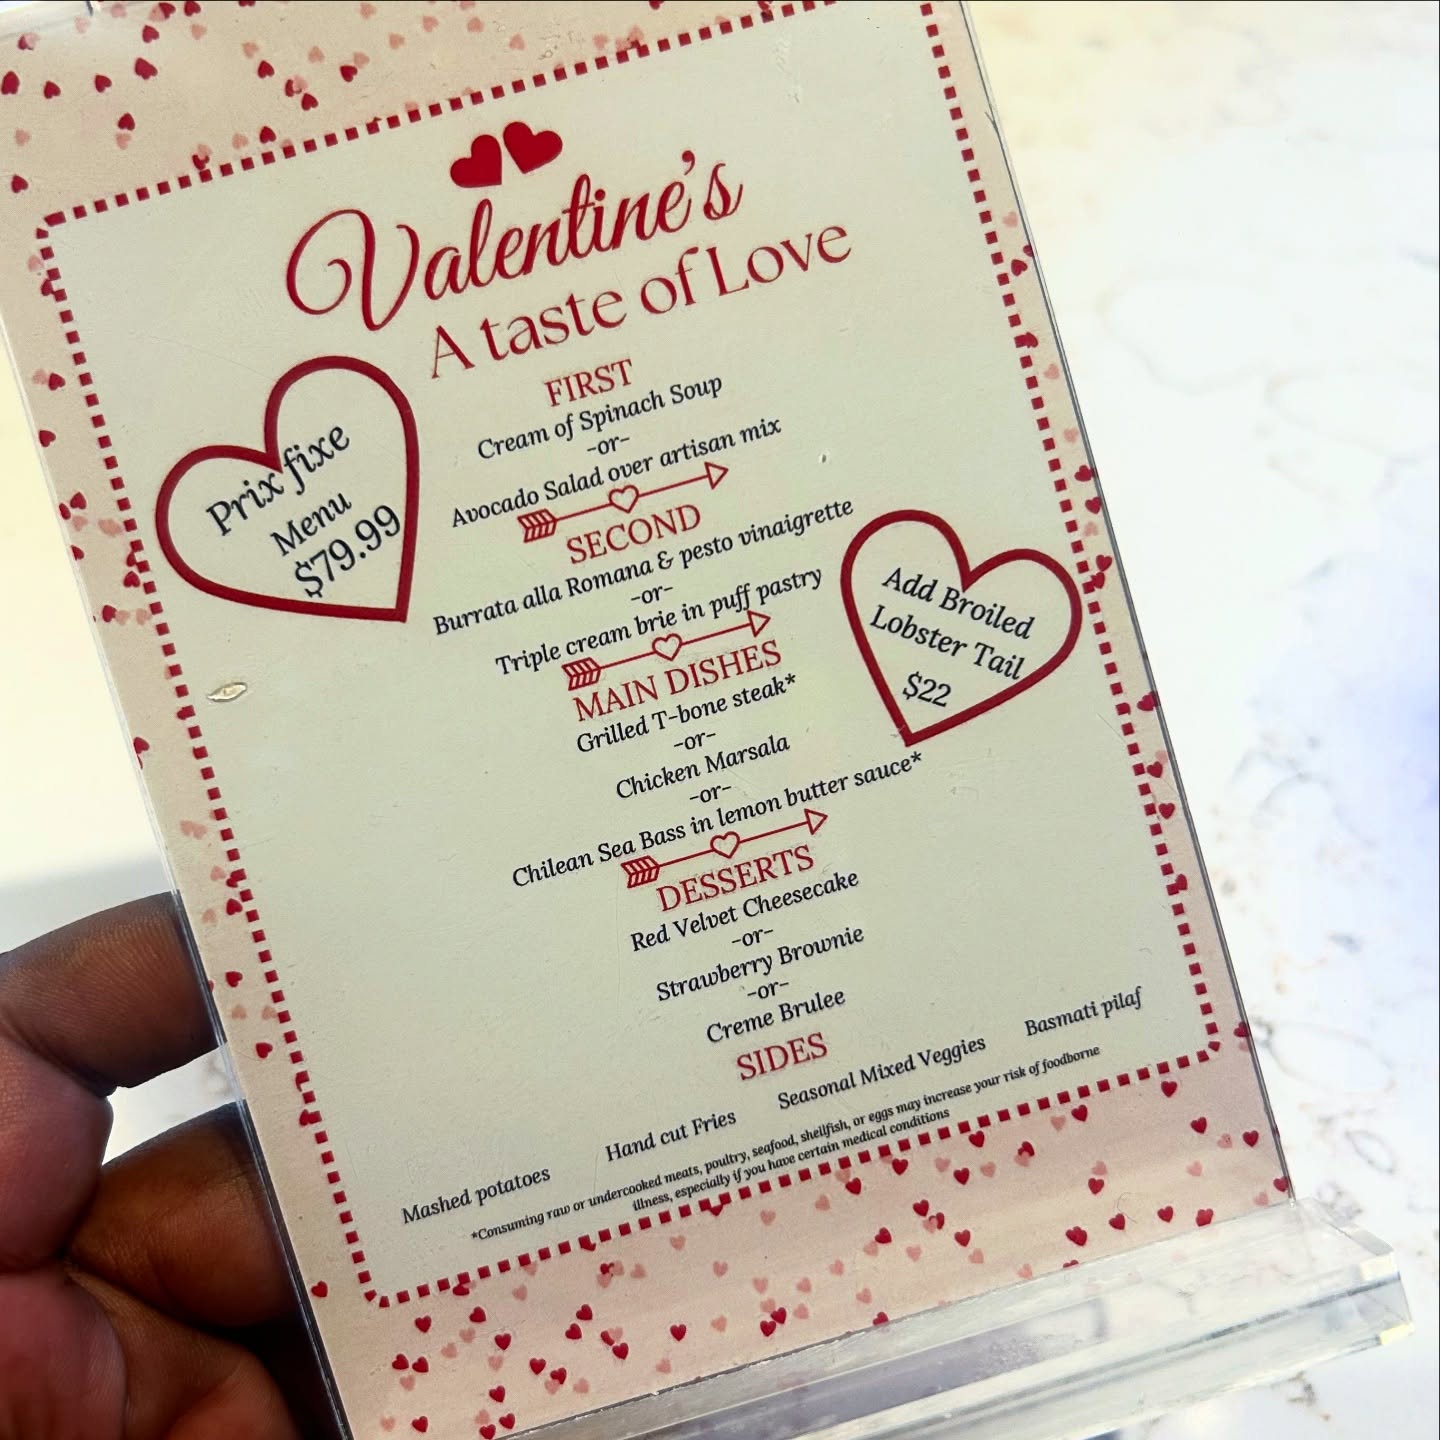 Valentine's
A taste of Love
Prix fixe
Menu
$79.99
FIRST
Cream of Spinach Soup
-or-
Avocado Salad over artisan mix
SECOND
Burrata alla Romana & pesto vinaigrette
-or-
Triple cream brie in puff pastry
Add Broiled
Lobster Tail
$22
MAIN DISHES
Grilled T-bone steak*
-or-
Chicken Marsala
-or-
Chilean Sea Bass in lemon butter sauce*
DESSERTS
Red Velvet Cheesecake
-or-
Strawberry Brownie
-or-
Creme Brulee
SIDES
Mashed potatoes Hand cut Fries Seasonal Mixed Veggies Basmati pilaf
*Consuming raw or undercooked meats, poultry, seafood, shellfish, or eggs may increase your risk of foodborne
illness, especially if you have certain medical conditions